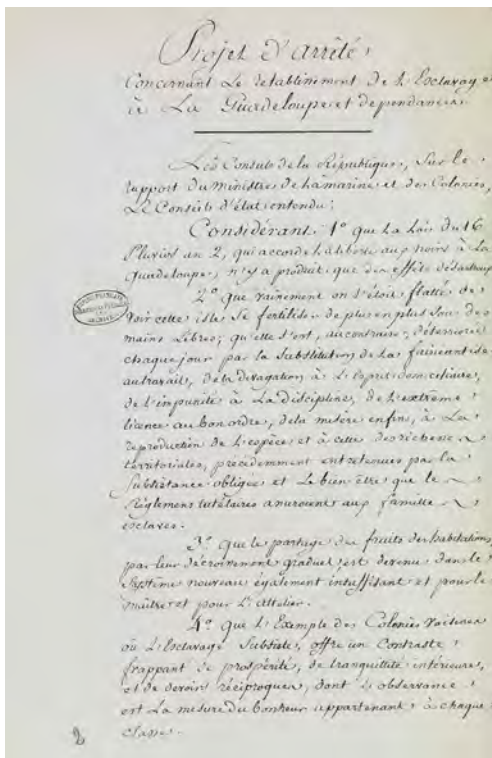 Projet d'arrêté,
Concernant Le retablissement De L'Esclavage
à La Guadeloupe et dependances.
Les Consuls de la République, Sur Le
rapport Du Ministre de la marine et des Colonies,
Le Conseil d'état entendu;
Considérant, 1º que La Loi du 16
Pluviose an 2, qui accorde la liberté aux noirs à La
Guadeloupe, n'y a produit que des effets désastreux
2º que vainement on s'étoit flatté de
Voir cette isle Se fertiliser de plus en plus Sous des
mains Libres; qu'elle s'est, au contraire, détériorée
chaque jour par la Substitution de La fainéantise
au travail, de la divagation à L'esprit domiciliaire,
de L'impunité à La discipline, de L'extrême
licence au bon ordre, de la misère enfin, à La
reproduction de L'espèce et à celle des richesses
territoriales, précédemment entretenues par la
Subsistance obligée et Le bien être que les
Réglemens tutélaires assuroient aux familles
esclaves.
3º que le partage des fruits des habitations,
par leur décroissement graduel, est devenu dans le
Système nouveau également insuffisant et pour le
maître et pour L'attelier.
4º que L'Exemple des Colonies Voisines
où L'Esclavage Subsiste, offre un Contraste
frappant de prospérité, de tranquillité intérieure,
et de devoirs réciproques, dont L'observance
est La mesure du bonheur appartenant à chaque
classe.
2